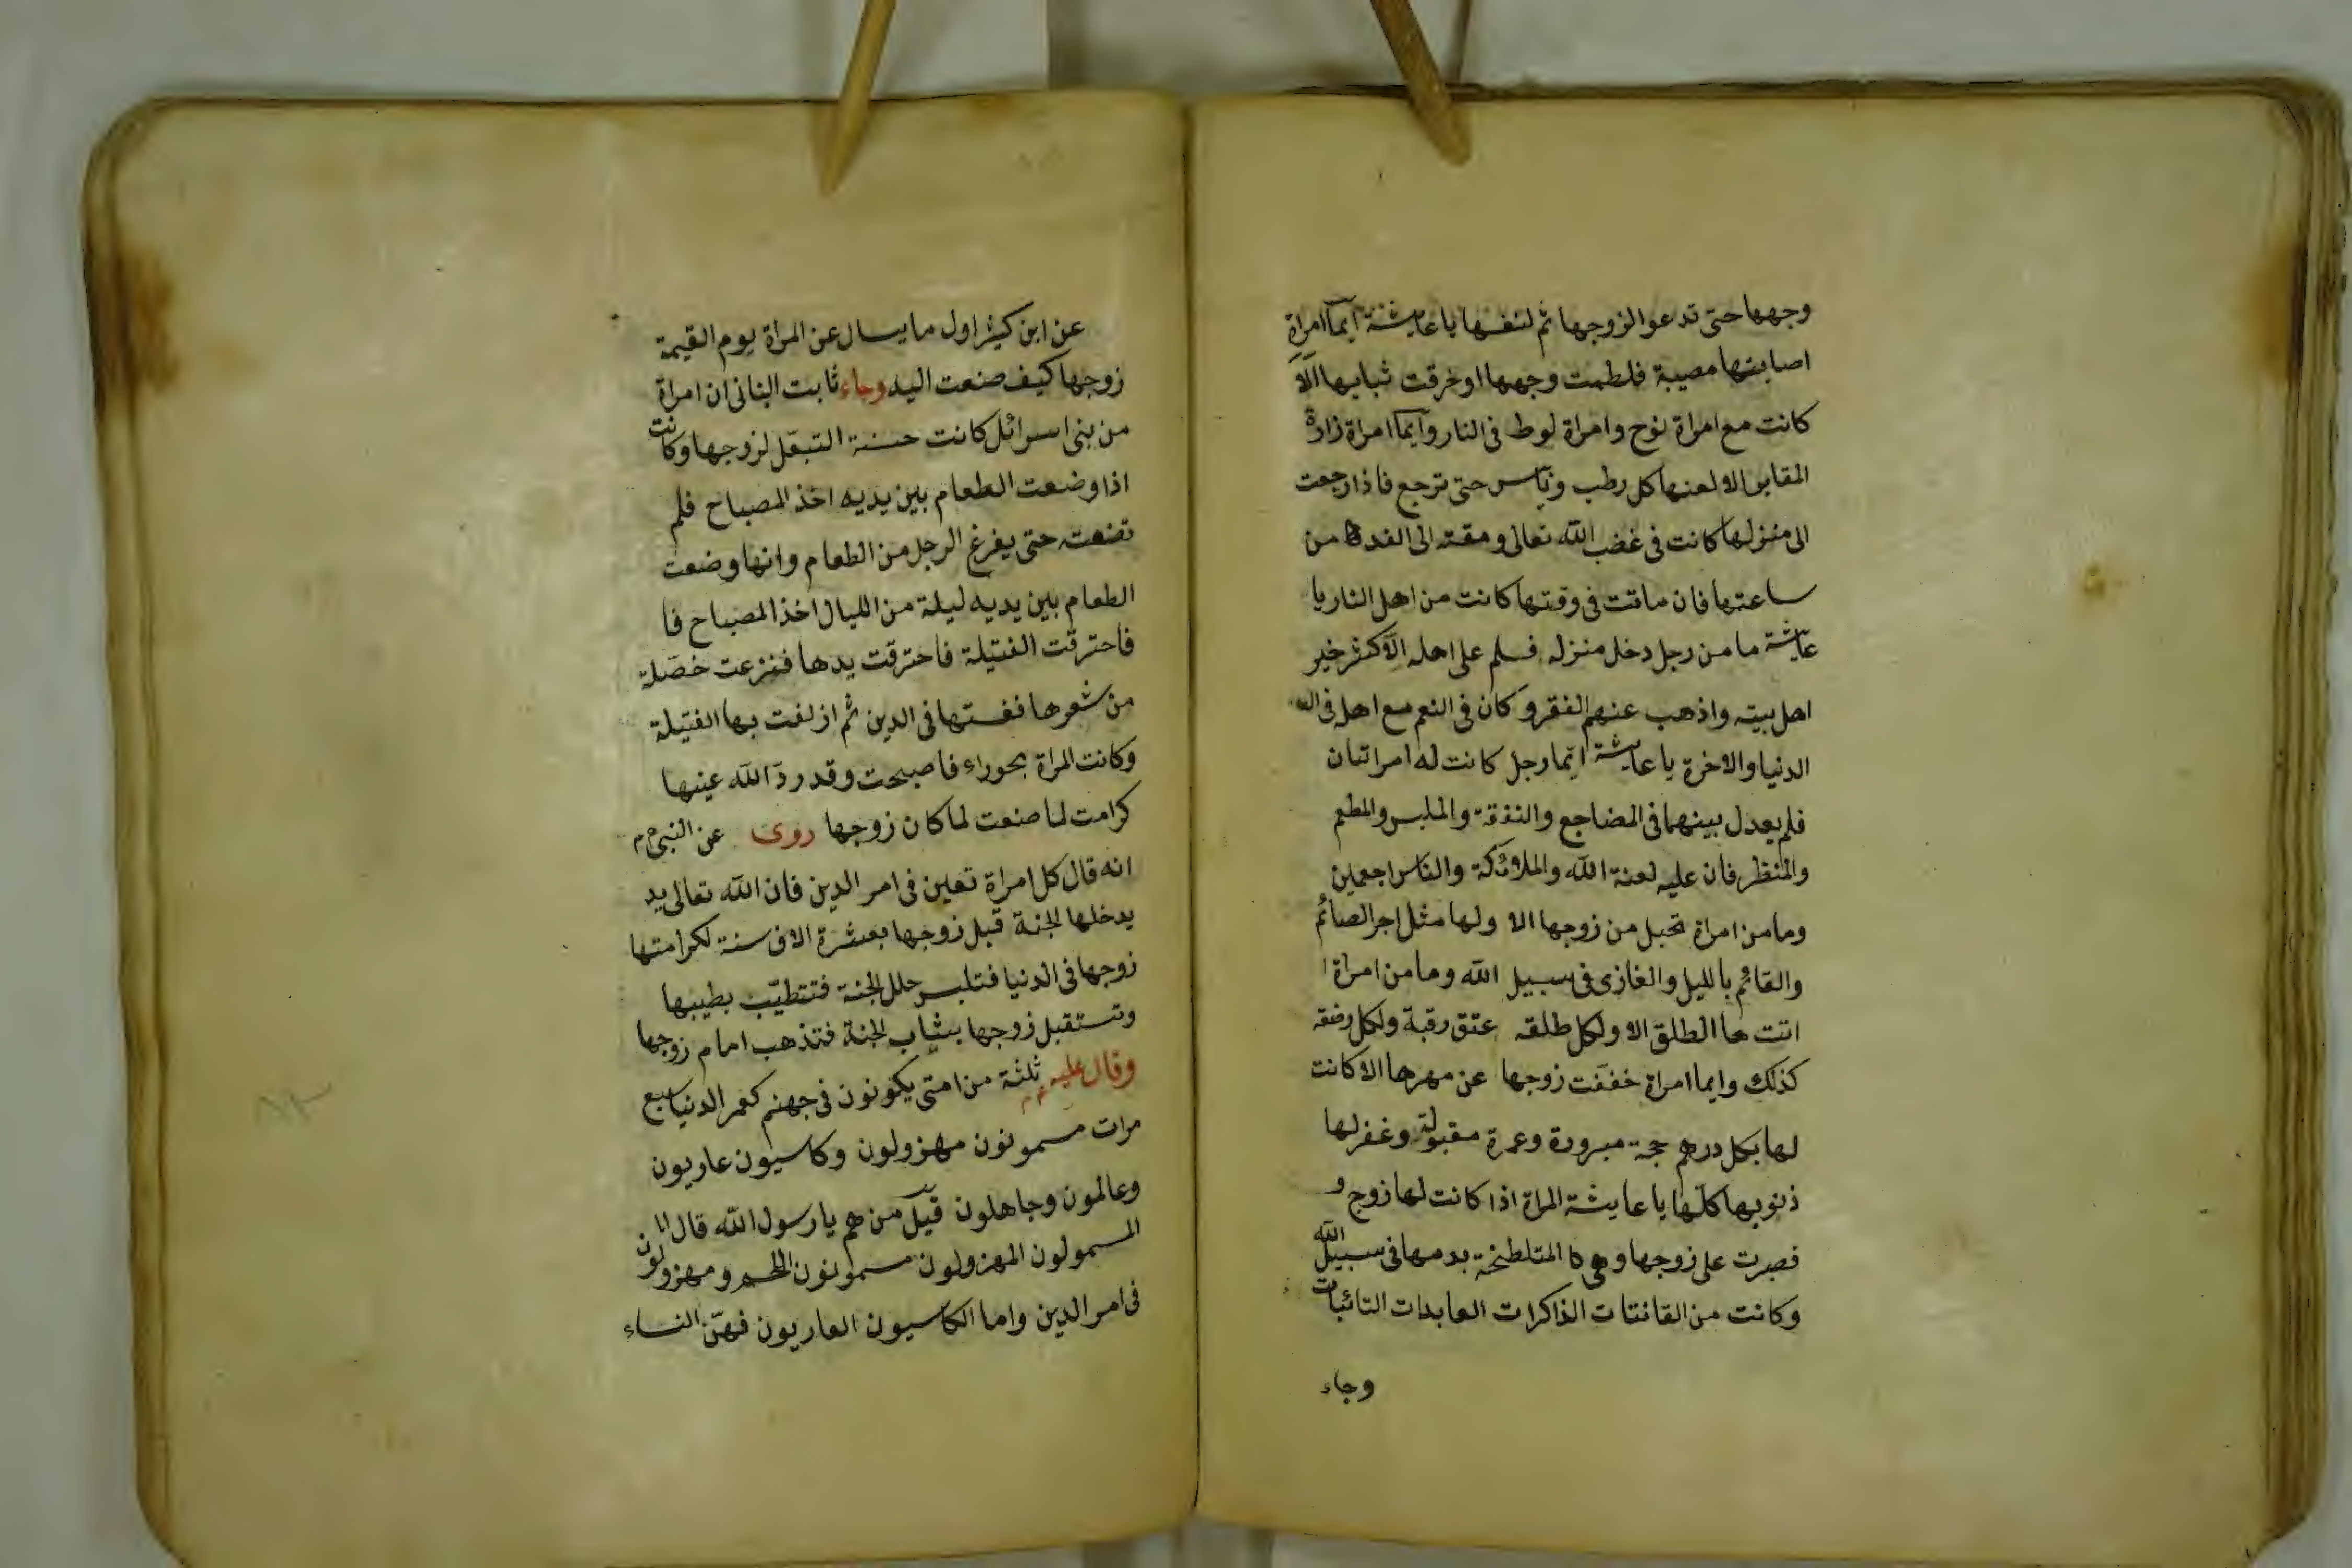 وجهها حتى تدعو الزوجها ثم لنفسها يا عايشة ايما امراة
اصابتها مصيبة فلطمت وجهها او خرقت ثيابها الا
كانت مع امراة نوح وامراة لوط فى النار وايما امراة زارة
المقابر الا لعنها كل رطب ويابس حتى ترجع فاذا رجعت
الى منزلها كانت فى غضب الله تعالى ومقته الى الغد من
ساعتها فان ماتت فى وقتها كانت من اهل النار يا
عايشة ما من رجل دخل منزله فسلم على اهله الا كثر خير
اهل بيته واذهب عنهم الفقر وكان فى النعم مع اهله فى
الدنيا والاخرة يا عايشة ايما رجل كانت له امراتان
فلم يعدل بينهما فى المضاجع والنفقة والملبس والمطعم
والمنظر فان عليه لعنة الله والملائكة والناس اجمعين
وما من امراة تحبل من زوجها الا ولها مثل اجر الصائم
والقائم بالليل والغازى فى سبيل الله وما من امراة ا
اتت ها الطلق الا ولكل طلقه عتق رقبة ولكل رضقه
كذلك وايما امراة خففت زوجها عن مهرها الا كانت
لها بكل درهم حجة مبرورة وعمرة مقبولة وغفر لها
ذنوبها كلها يا عايشة المراة اذا كانت لها زوج و
فصبرت على زوجها وهى كا المتلطخة بدمها فى سبيل الله
وكانت من القانتات الذاكرات العابدات التائبات
وجاء
عن ابن كثير اول ما يسال عن المراة يوم القيمة
زوجها كيف صنعت اليه وجاء ثابت البنانى ان امراة
من بنى اسرائل كانت حسنة التبعّل لزوجها وكانت
اذا وضعت الطعام بين يديه اخذ المصباح فلم
تضعه حتى يفرغ الرجل من الطعام وانها وضعت
الطعام بين يديه ليلة من الليال اخذ المصباح فا
فاحترقت الفتيلة فاحترقت يدها فنزعت خصلة
من شعرها فغستها فى الدين ثم ازلفت بها الفتيلة
وكانت المراة بحوراء فاصبحت وقد ردّ الله عينها
كرامت لما صنعت لما كان زوجها روى عن النبى م
انه قال كل امراة تعين فى امر الدين فان الله تعالى يد
يدخلها الجنة قبل زوجها بعشرة الاف سنة لكرامتها
زوجها فى الدنيا فتلبس حلل الجنة فتتطيّب بطيبها
وتستقبل زوجها بشاب الجنة فتذهب امام زوجها
وقال عليه ثلثة من امتى يكونون فى جهنم كعمر الدنيا سبع
مرات مسمونون مهزولون وكاسيون عاريون
وعالمون وجاهلون قيل من هم يا رسول الله قال اما
المسمولون المهزولون مسمونون اللحم ومهزولون
فى امر الدين واما الكاسيون العاريون فهنّ النساء